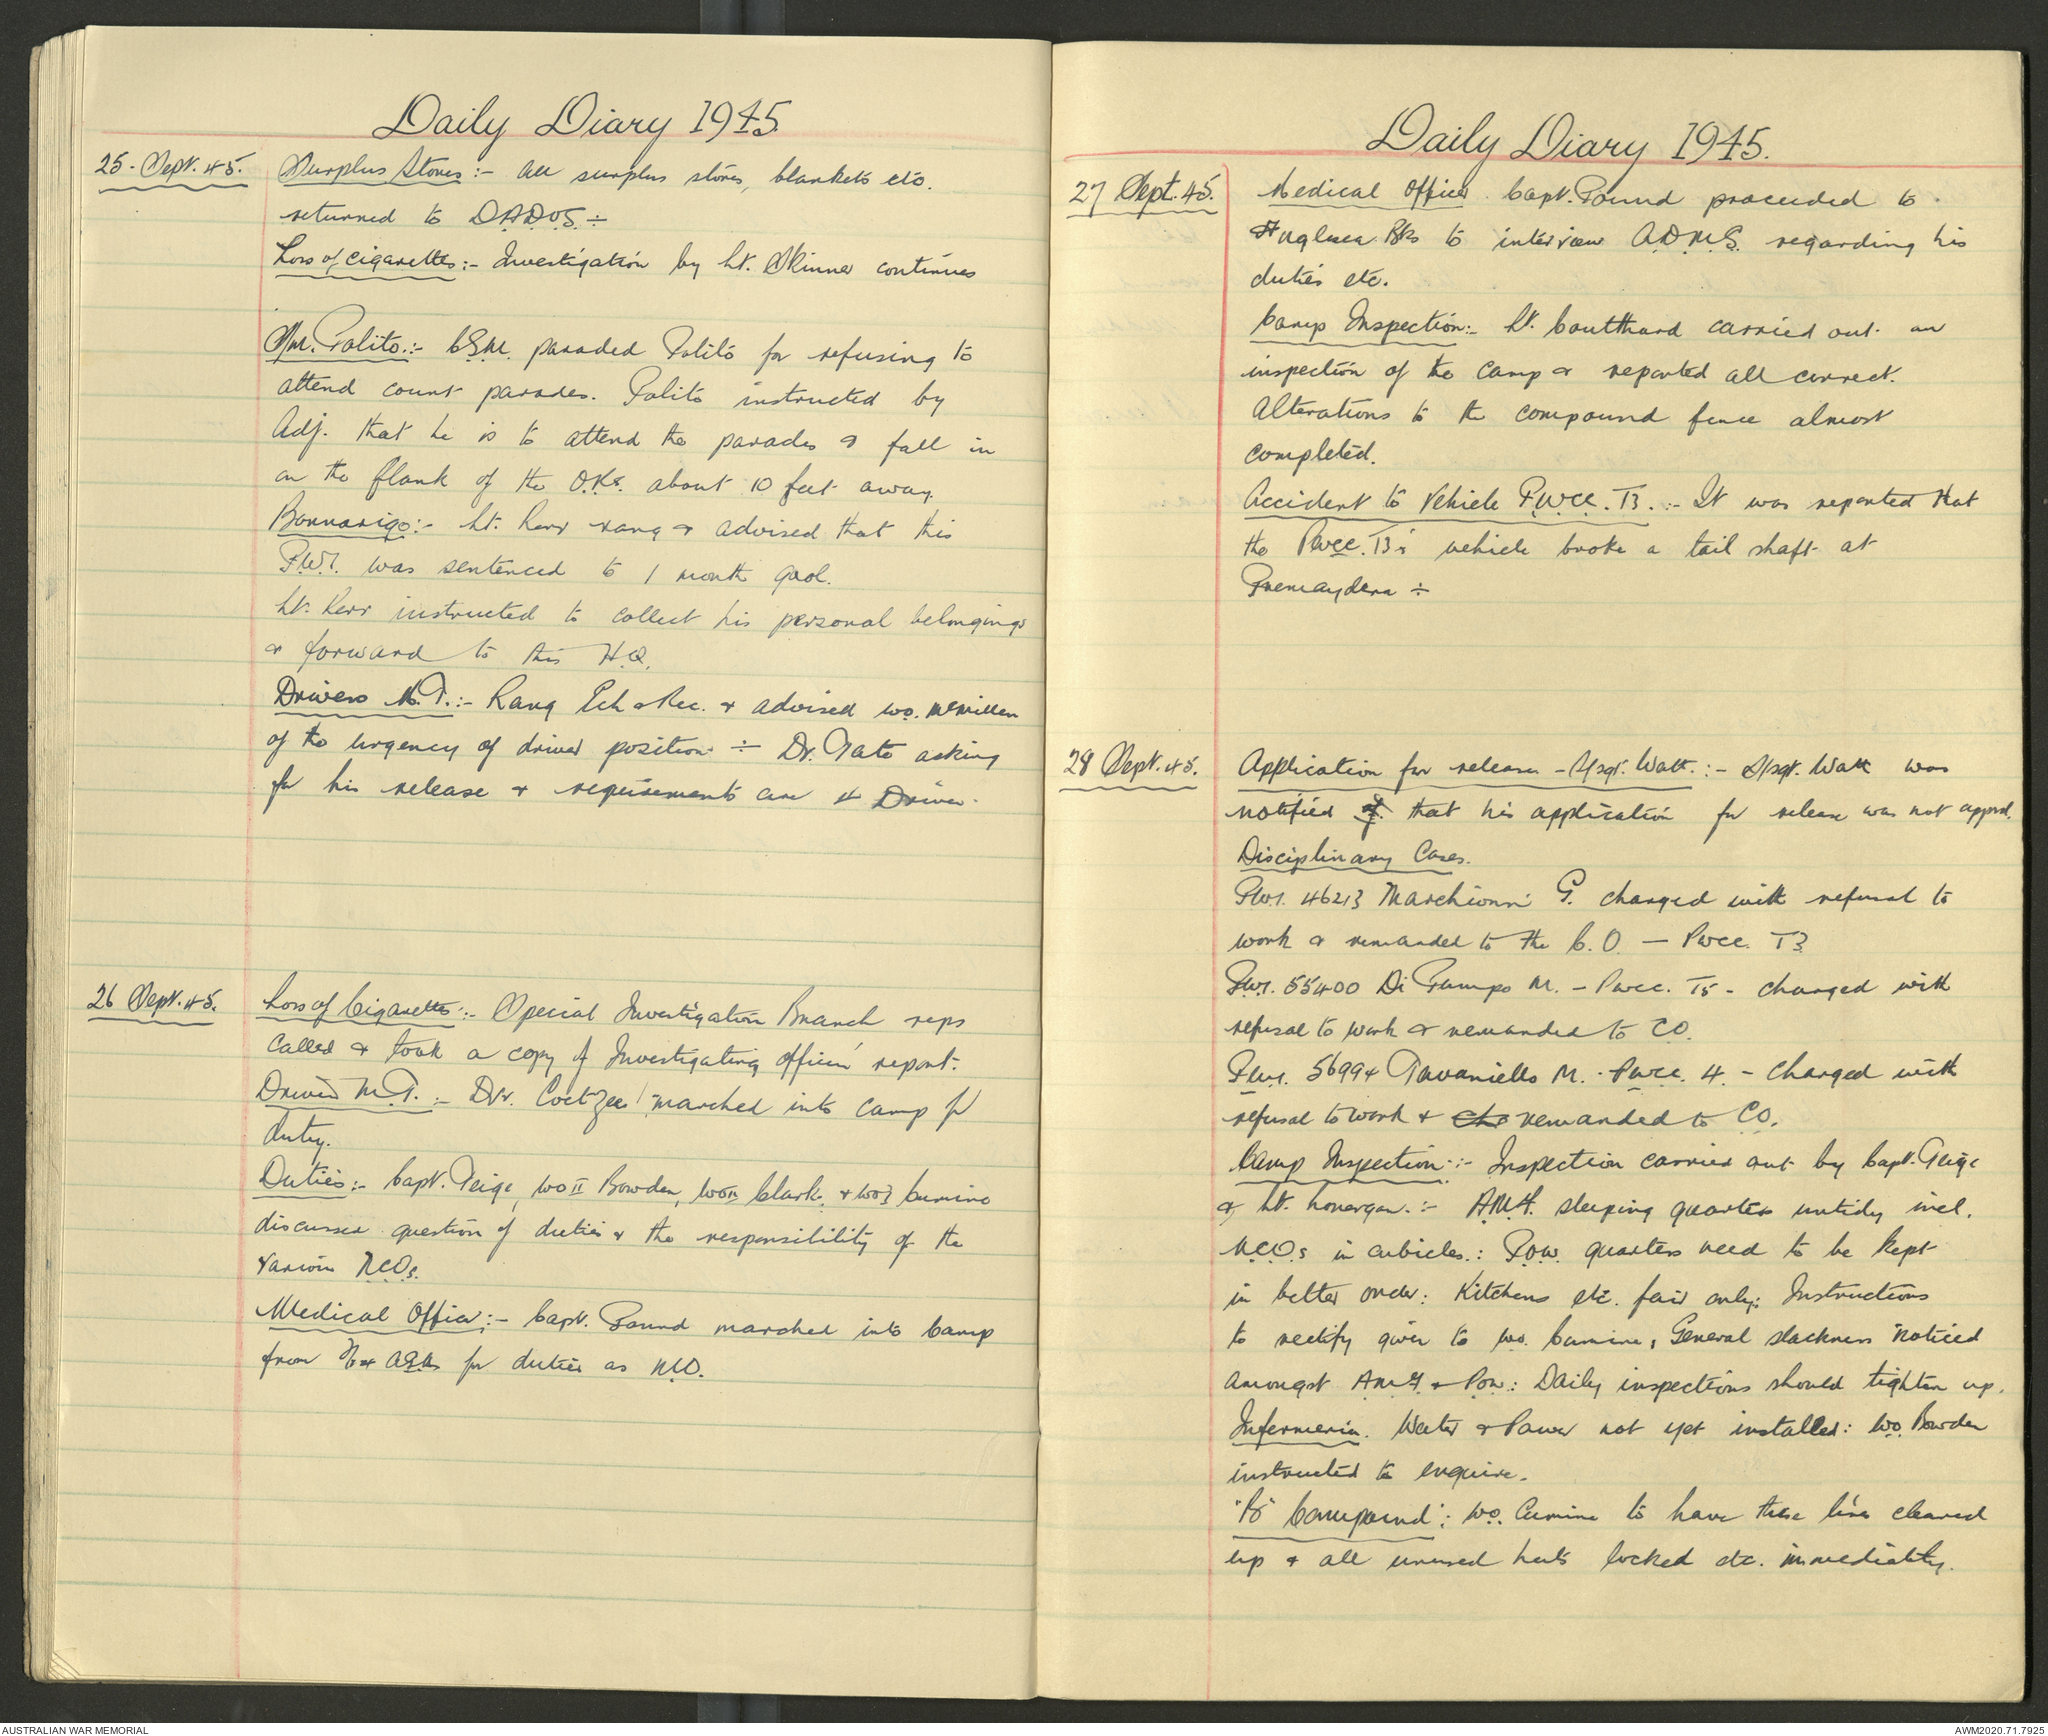 Daily Diary 1945.
25. Sept. 45. Surplus Stores:- All surplus stores, blankets etc.
returned to D.A.D.O.S. ÷
Loss of cigarettes:- Investigation by Lt. Skinner continues
M/m. Polito:- C.S.M. paraded Polito for refusing to
attend count parades. Polito instructed by
Adj. that he is to attend the parades & fall in
on the flank of the O.Rs. about 10 feet away.
Bonnarigo:- Lt. Kerr rang & advised that this
P.W.I. was sentenced to 1 month gaol.
Lt. Kerr instructed to collect his personal belongings
& forward to this H.Q.
Drivers M.T.:- Rang Ech & Rec. & advised W.O. McMillen
of the urgency of driver position ÷ Dr. Tate asking
for his release & requirements are 4 Driver.
26 Sept. 45. Loss of Cigarettes:- Special Investigation Branch reps
called & took a copy of Investigating officers' report.
Driver M.T. :- Dvr. Coetzee marched into camp for
duty.
Duties:- Capt. Teige, WO II Bowden, WO II Clark, & WO I Cumine
discussed question of duties & the responsibility of the
various N.C.Os.
Medical Officer:- Capt. Pound marched into Camp
from for duties as M.O.
Daily Diary 1945.
27 Sept. 45. Medical Officer Capt. Pound proceeded to
Bks to interview A.D.M.S. regarding his
duties etc.
Camp Inspection:- Lt. Coulthard carried out an
inspection of the camp & reported all correct.
Alterations to the compound fence almost
completed.
Accident to Vehicle P.W.C.C. T3. :- It was reported that
the Pwcc. T3's vehicle broke a tail shaft at
Premaydena ÷
28 Sept. 45. Application for release - S/sgt. Watt. :- S/sgt. Watt was
notified of that his application for release was not apprvd.
Disciplinary Cases.
P.W.I. 46213 Marchionni G. charged with refusal to
work & remanded to the C.O. — Pwcc. T3
P.W.I. 55400 Di Pumpo M. - Pwcc. T5 - Charged with
refusal to work & remanded to CO.
P.W.I. 56994 Tavaniello M. - Pwcc. 4. - Charged with
refusal to work & Chr remanded to C.O.
Camp Inspection :- Inspection carried out by Capt. Teige
& Lt. Lonergan. :- A.M.F. sleeping quarters untidy incl.
N.C.Os in cubicles. : P.O.W. quarters need to be kept
in better order: Kitchens etc. fair only: Instructions
to rectify given to W.O. Cumine, General slackness noticed
amongst A.M.F. & P.O.W.: Daily inspections should tighten up.
Infermeria. Water & Power not yet installed: W.O. Bowden
instructed to enquire.
"B" Compound": W.O. Cumine to have these lines cleaned
up & all unused huts locked etc. immediately.
AUSTRALIAN WAR MEMORIAL
AWM2020.71.7925